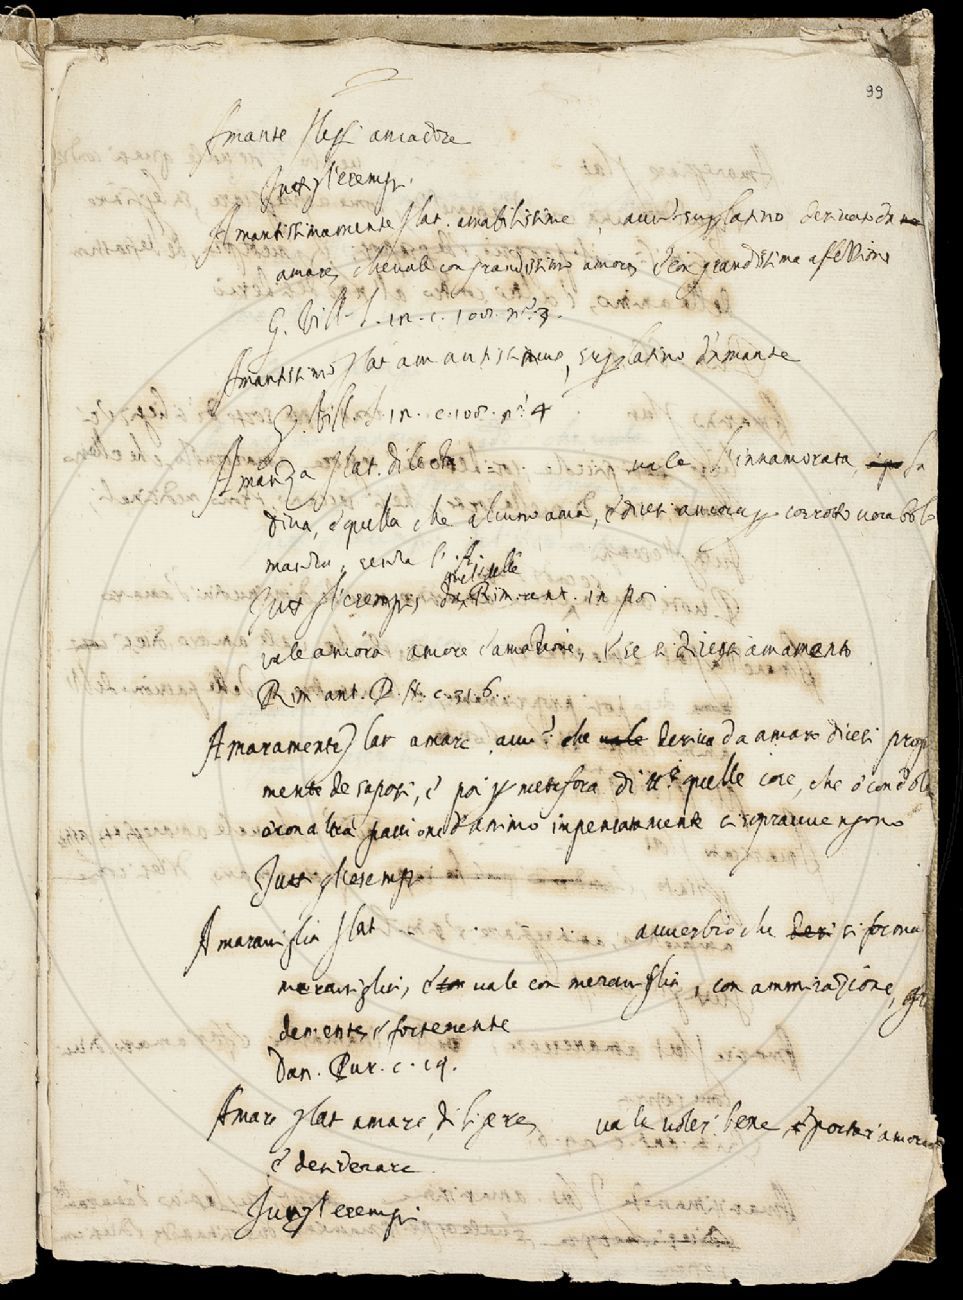 99
Amante / leggi amadore
Tutti gl'esempi.
Amantissimamente / lat. amabilissime, auu: superlatiuo deriuato da
amare, che uale con grandissimo amore, è con grandissima affettione
G. Vill. l. 12. c. 108. n.º 3.
Amantissimo / lat amantissimus, superlatiuo d'Amante
G. Vill. l. 12. c. 108. n.º 4
Amanza / lat. dilecta uale l'innamorata, la
diua, è quella che alcuno ama, è dicesi ancora p corrotto uocabolo
manza, senza l'A
Tutti gl'esempi Rim. ant. in
uale ancora amore è amazione, è se si dicessi amamento
Rim. ant. P. N. c. 316.
Amaramente / lat amare auu: che uale deriua da amaro dicesi propr
mente de sapori, è poi p metafora di tt.e quelle cose, che ò con dolo
ò con altra passione d'animo inpensatamente ci soprauuengono
Tutti gl'esempi
Amarauiglia / lat auuerbio che si forma
marauiglia, è uale con merauiglia, con ammirazione,
demente è fortemente
Dan. Pur. c. 19.
Amare / lat amare, diligere, uale uoler bene, è portar amore
è desiderare
Tutti gl'esempi